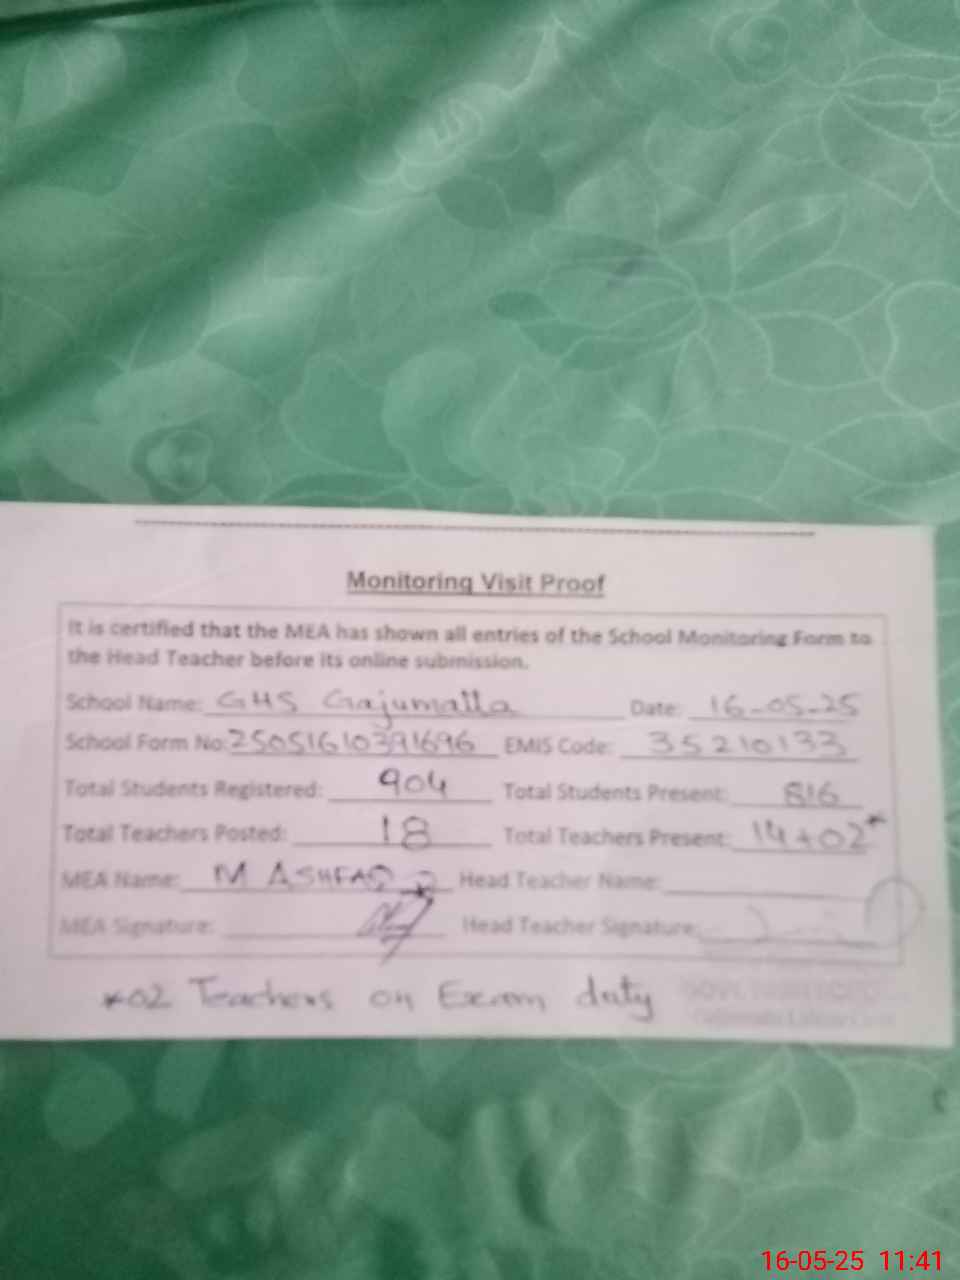 Monitoring Visit Proof
It is certified that the MEA has shown all entries of the School Monitoring Form to
the Head Teacher before its online submission.
School Name: GHS Gajumatta Date: 16-05-25
School Form No: 25051610391696 EMIS Code: 35210133
Total Students Registered: 904 Total Students Present: 816
Total Teachers Posted: 18 Total Teachers Present: 14+02*
MEA Name: M ASHFAQ Head Teacher Name:
MEA Signature: Head Teacher Signature:
*02 Teachers on Exam duty
16-05-25 11:41